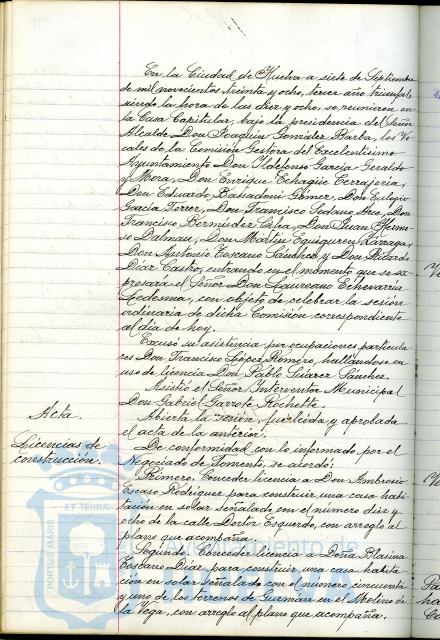 En la Ciudad de Huelva a siete de Septiembre
de mil novecientos treinta y ocho, tercer año triunfal,
siendo la hora de las diez y ocho, se reunieron en
la Casa Capitular, bajo la presidencia del Señor
Alcalde Don Joaquín González Barba, los Vo-
cales de la Comisión Gestora del Excelentísimo
Ayuntamiento Don Ildefonso García Geraldo
y Mora, Don Enrique Echagüe Cerrajería,
Don Eduardo Gómez, Don Eulogio
García Ferrer, Don Francisco Sedano Arce, Don
Francisco Bermúdez Cela, Don Juan
Dalmau, Don Martín Eguiguren Azcaraga,
Don Antonio Toscano Sánchez y Don Ricardo
Díaz Castro, entrando en el momento que se ex-
presará el Señor Don Laureano Echevarría
Ledesma, con objeto de celebrar la sesión
ordinaria de dicha Comisión correspondiente
al día de hoy.
Excusó su asistencia por ocupaciones particula-
res Don Francisco López Romero, hallándose en
uso de licencia Don Pablo Suárez Sánchez.
Asistió el Señor Interventor Municipal
Don Gabriel Garrote Rochette.
Acta.
Abierta la sesión, fue leída y aprobada
el acta de la anterior.
Licencias de
construcción.
De conformidad con lo informado por el
Negociado de Fomento, se acordó:
Primero. Conceder licencia a Don Ambrosio
Rodríguez para construir una casa habi-
tación en solar señalado con el número diez y
ocho de la calle Doctor Esquerdo, con arreglo al
plano que acompaña.
Segundo. Conceder licencia a Doña Blasina
Toscano Díaz para construir una casa habita-
ción en solar señalado con el número cincuenta
y uno de los terrenos de Guzmán en el Molino de
la Vega, con arreglo al plano que acompaña.
PORTUS MARIS
ET TERRÆ
Ayuntamiento de